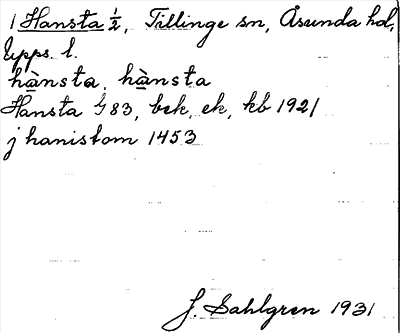 1 Hansta ½, Tillinge sn, Åsunda hd,
Upps. l.
hànsta, hànsta
Hansta G 83, bek, ek, kb 1921
j hanistom 1453
J. Sahlgren 1931